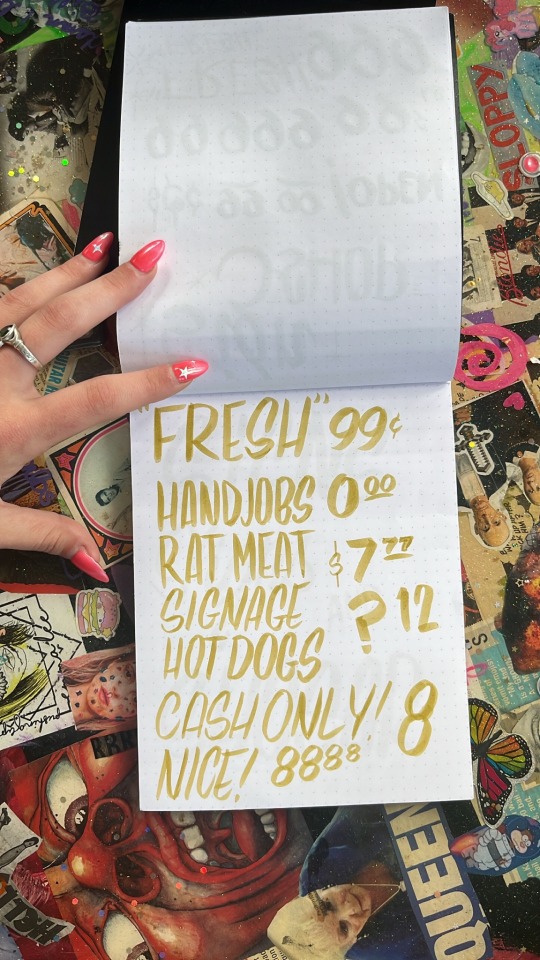 "FRESH" 99¢
HANDJOBS 0⁰⁰
RAT MEAT $7⁷⁷
SIGNAGE ? 12
HOT DOGS
CASH ONLY! 8
NICE! 88⁸⁸
SLOPPY
QUEEN